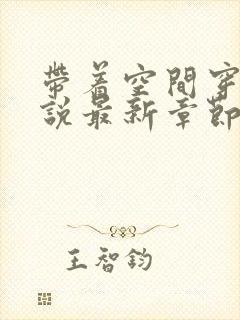 帶着空間穿
說最新章節
王智鈞